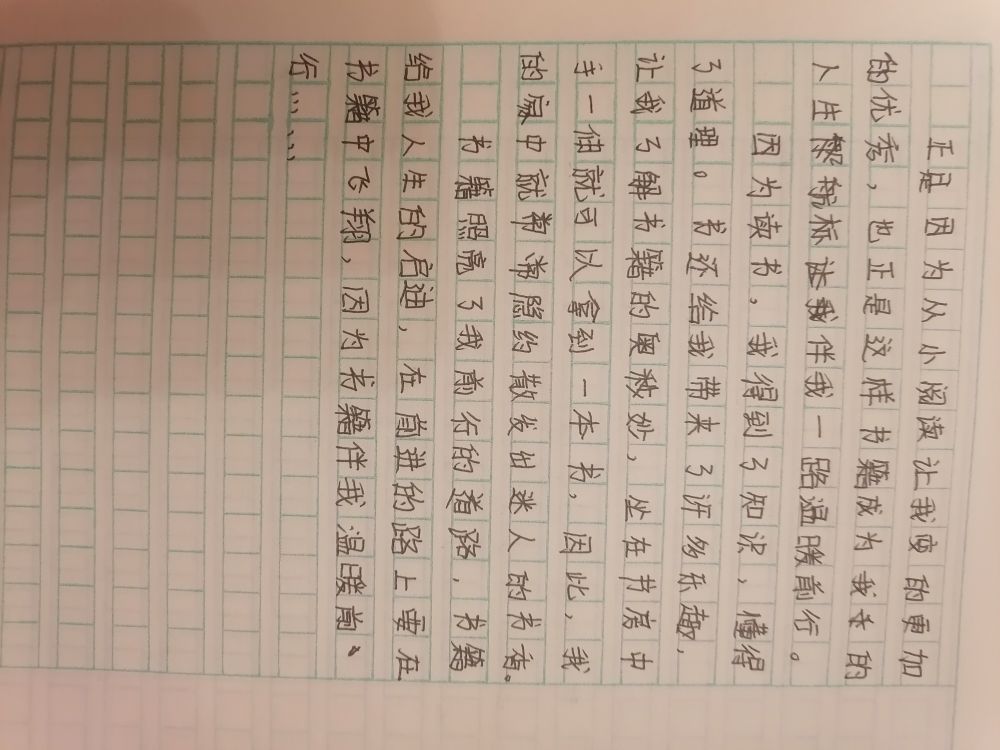 正是因为从小阅读让我变的更加
的优秀，也正是这样书籍成为我的
人生标伴我一路温暖前行。
因为读书，我得到了知识，懂得
了道理。书还给我带来了许多乐趣，
让我了解书籍的奥妙，坐在书房中
手一伸就可以拿到一本书，因此，我
的家中就常常隐约散发出迷人的书香。
书籍照亮了我前行的道路，书籍
给我人生的启迪，在前进的路上要在
书籍中飞翔，因为书籍伴我温暖前
行……